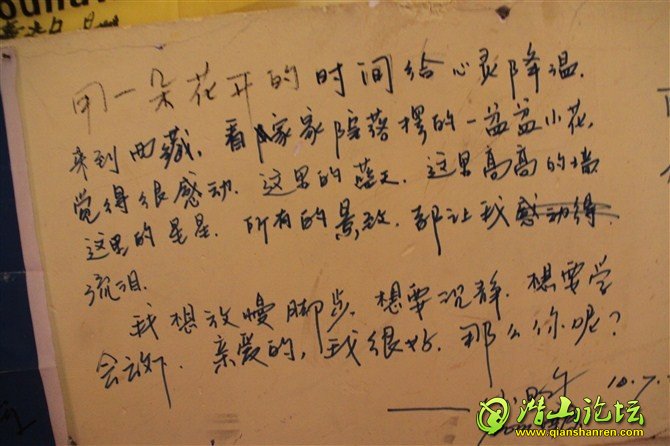 用一朵花开的时间给心灵降温.
来到西藏,看家家院落摆的一盆盆小花,
觉得很感动.这里的蓝天.这里高高的墙.
这里的星星.所有的景致.都让我感动得
流泪.
我想放慢脚步.想要沉静.想要学
会放下.亲爱的,我很好.那么你呢?
10.7.
潜山论坛
www.qianshanren.com